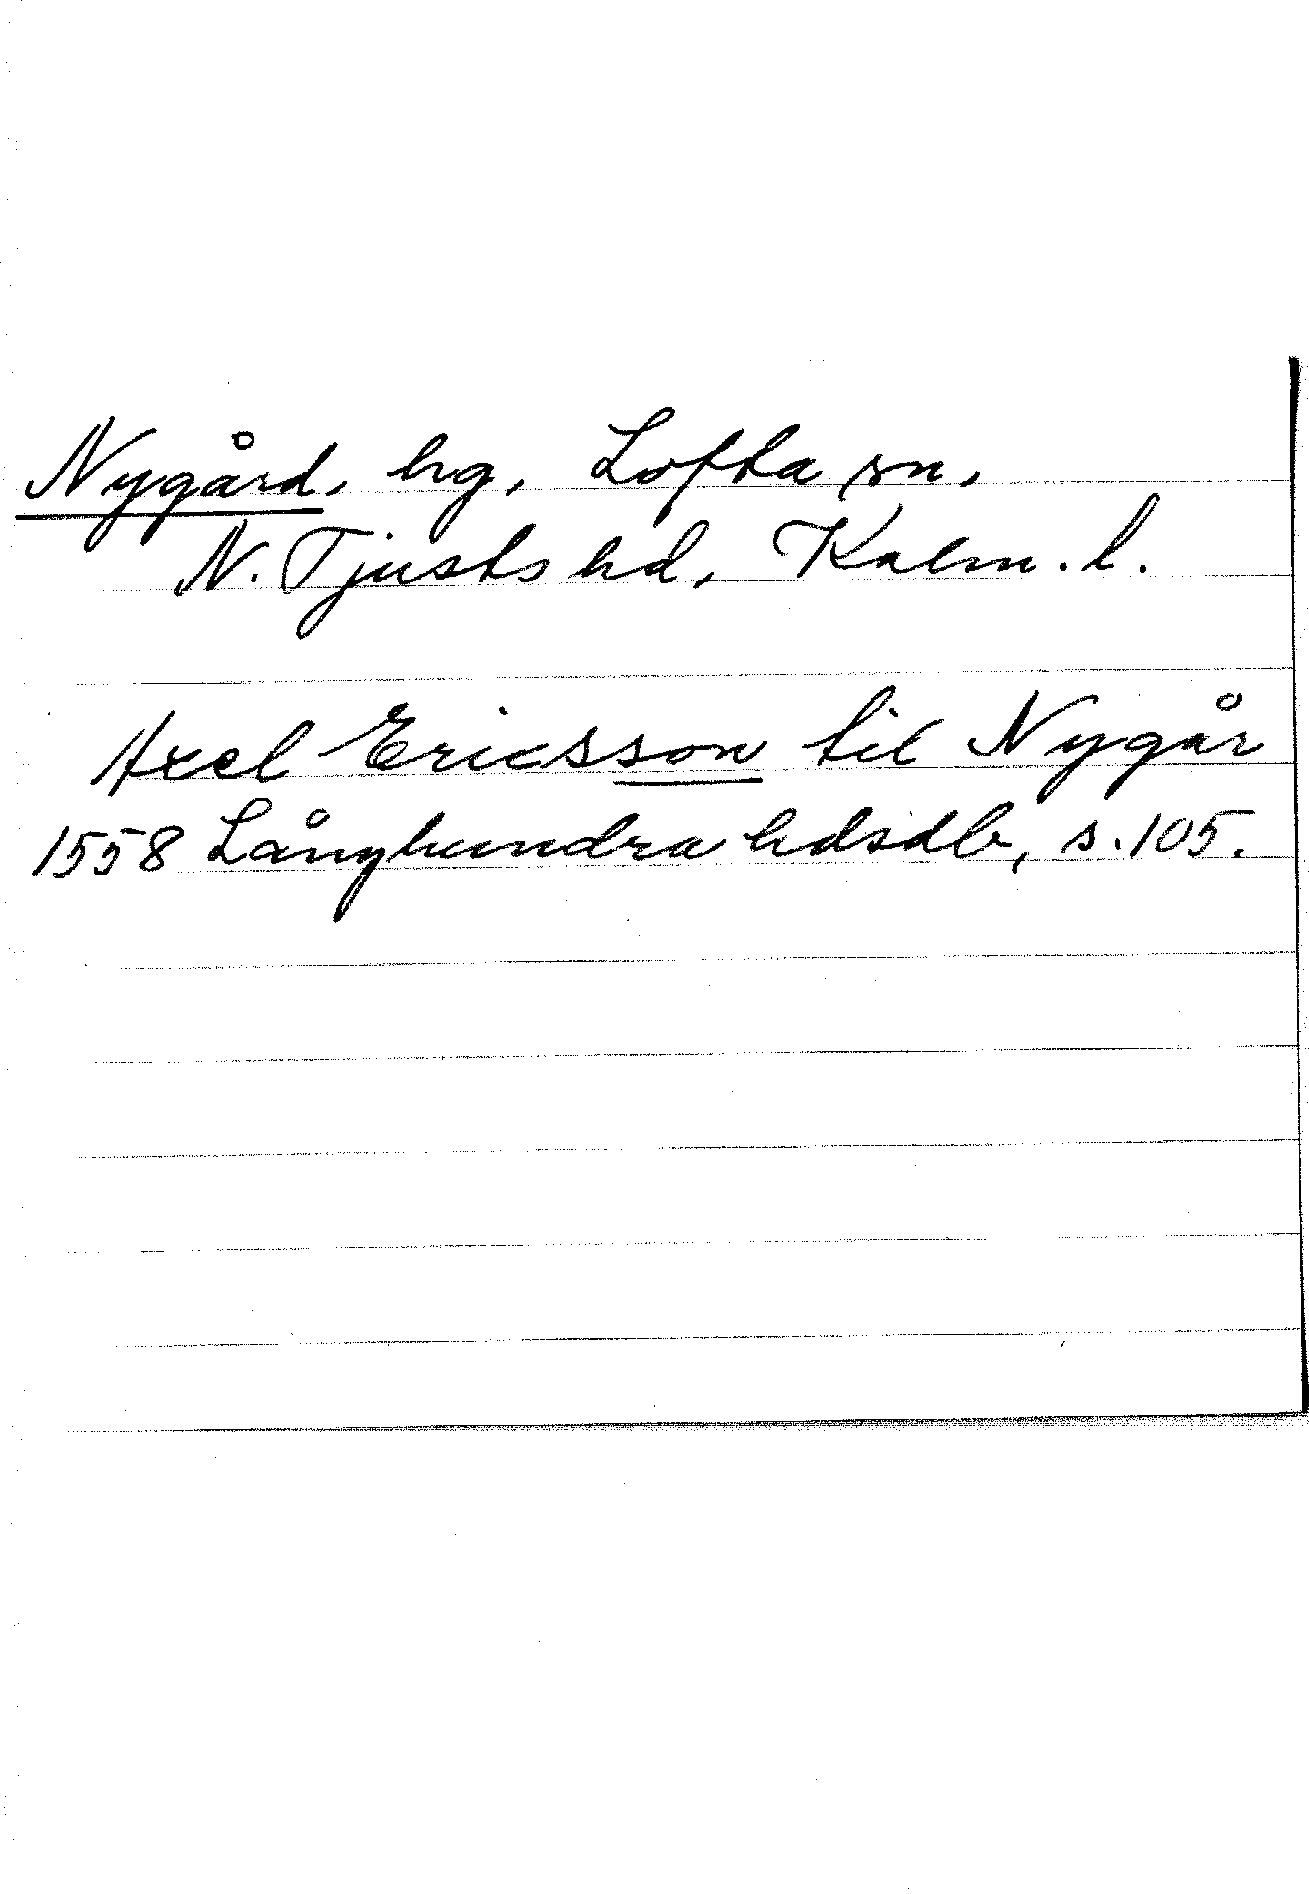 Nygård, hg, Lofta sn,
N. Tjusts hd, Kalm. l.
Axel Ericsson til Nygår
1558 Långhundra hdsdb, s. 105.